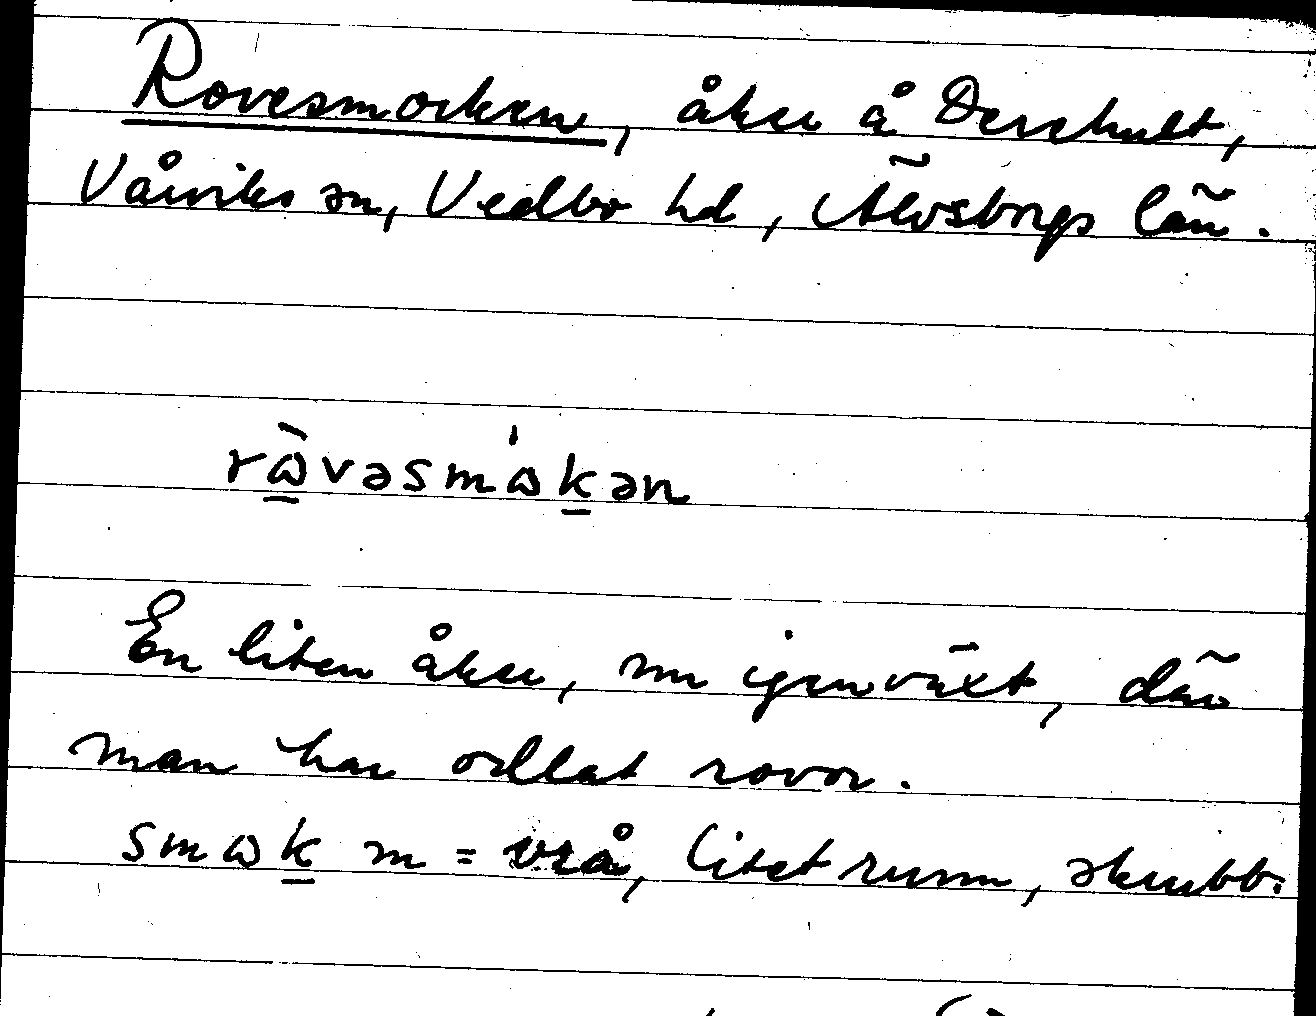 Rovesmocken, åker å Derskult,
Vårviks sn, Vedbo hd, Älvsborgs län.
rɷ̀vəsmɷ̍kən
En liten åker, nu igenväxt, där
man har odlat rovor.
smɷk m = vrå, litet rum, skrubb.